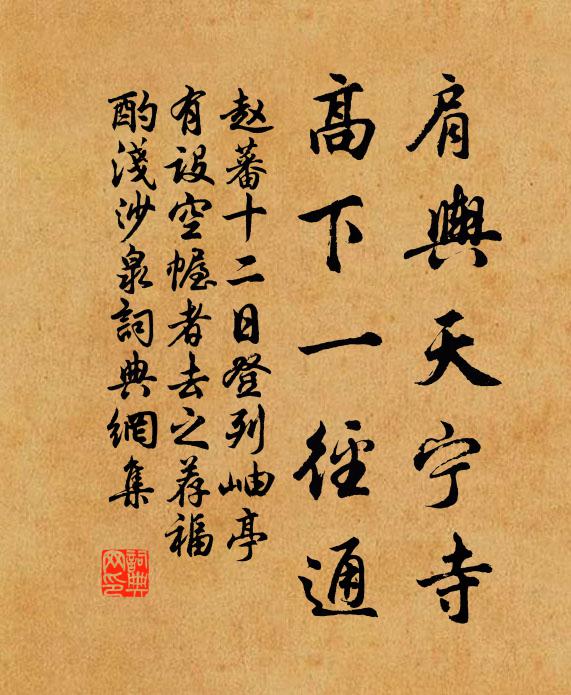 肩輿天宁寺
高下一徑通
赵蕃十二日登列岫亭
有設空幄者去之荐福
酌淺沙泉詞典網集
詞典网印